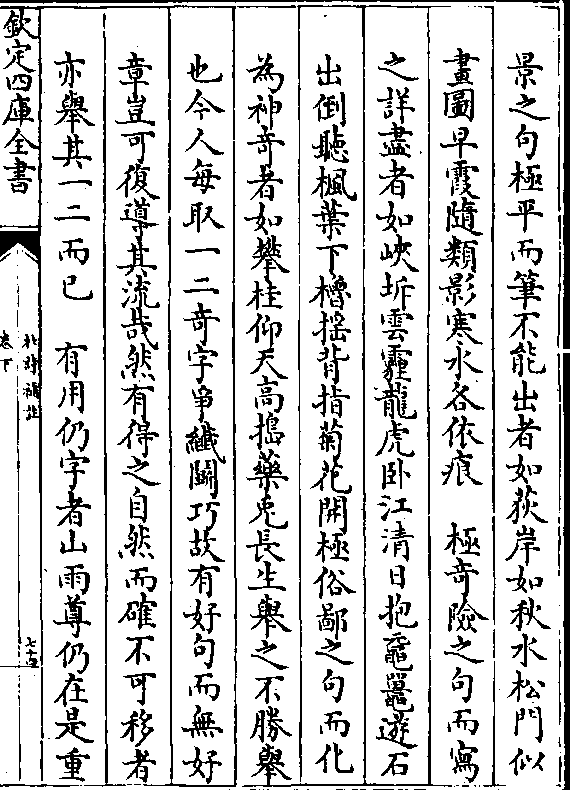 景之句極平而筆不能出者如荻岸如秋水松門似
畫圖早霞隨類影寒水各依痕　極奇險之句而寫
之詳盡者如峽坼雲霾龍虎卧江清日抱黿鼉遊石
出倒聽楓葉下櫓揺背指菊花開極俗鄙之句而化
為神奇者如攀桂仰天高搗藥兎長生舉之不勝舉
也今人每取一二奇字爭纎鬭巧故有好句而無好
章豈可復導其流哉然有得之自然而確不可移者
亦舉其一二而已　有用仍字者山雨尊仍在是重
欽定四庫全書
杜詩補註
卷下